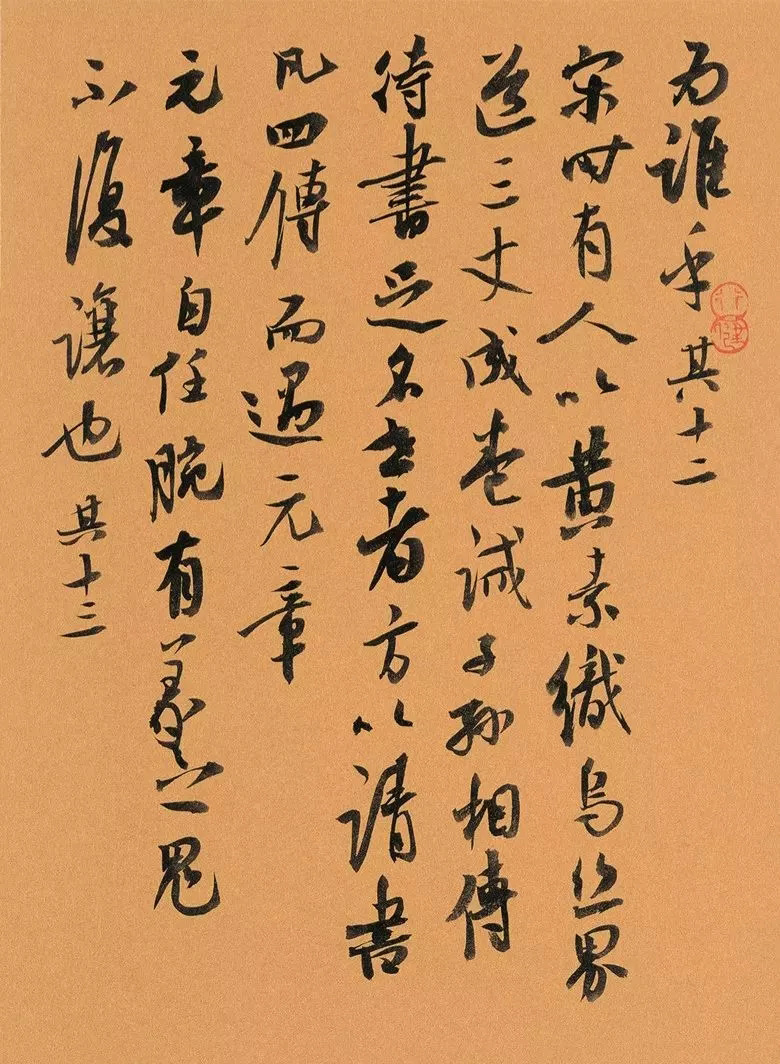 為誰乎 其十二
宋時有人以黄素織烏丝界
道三丈成卷誡子孫相傳
待書足名世者方以請書
凡四傳而遇元章
元章自任腕有羲之鬼
不復讓也 其十三
行健